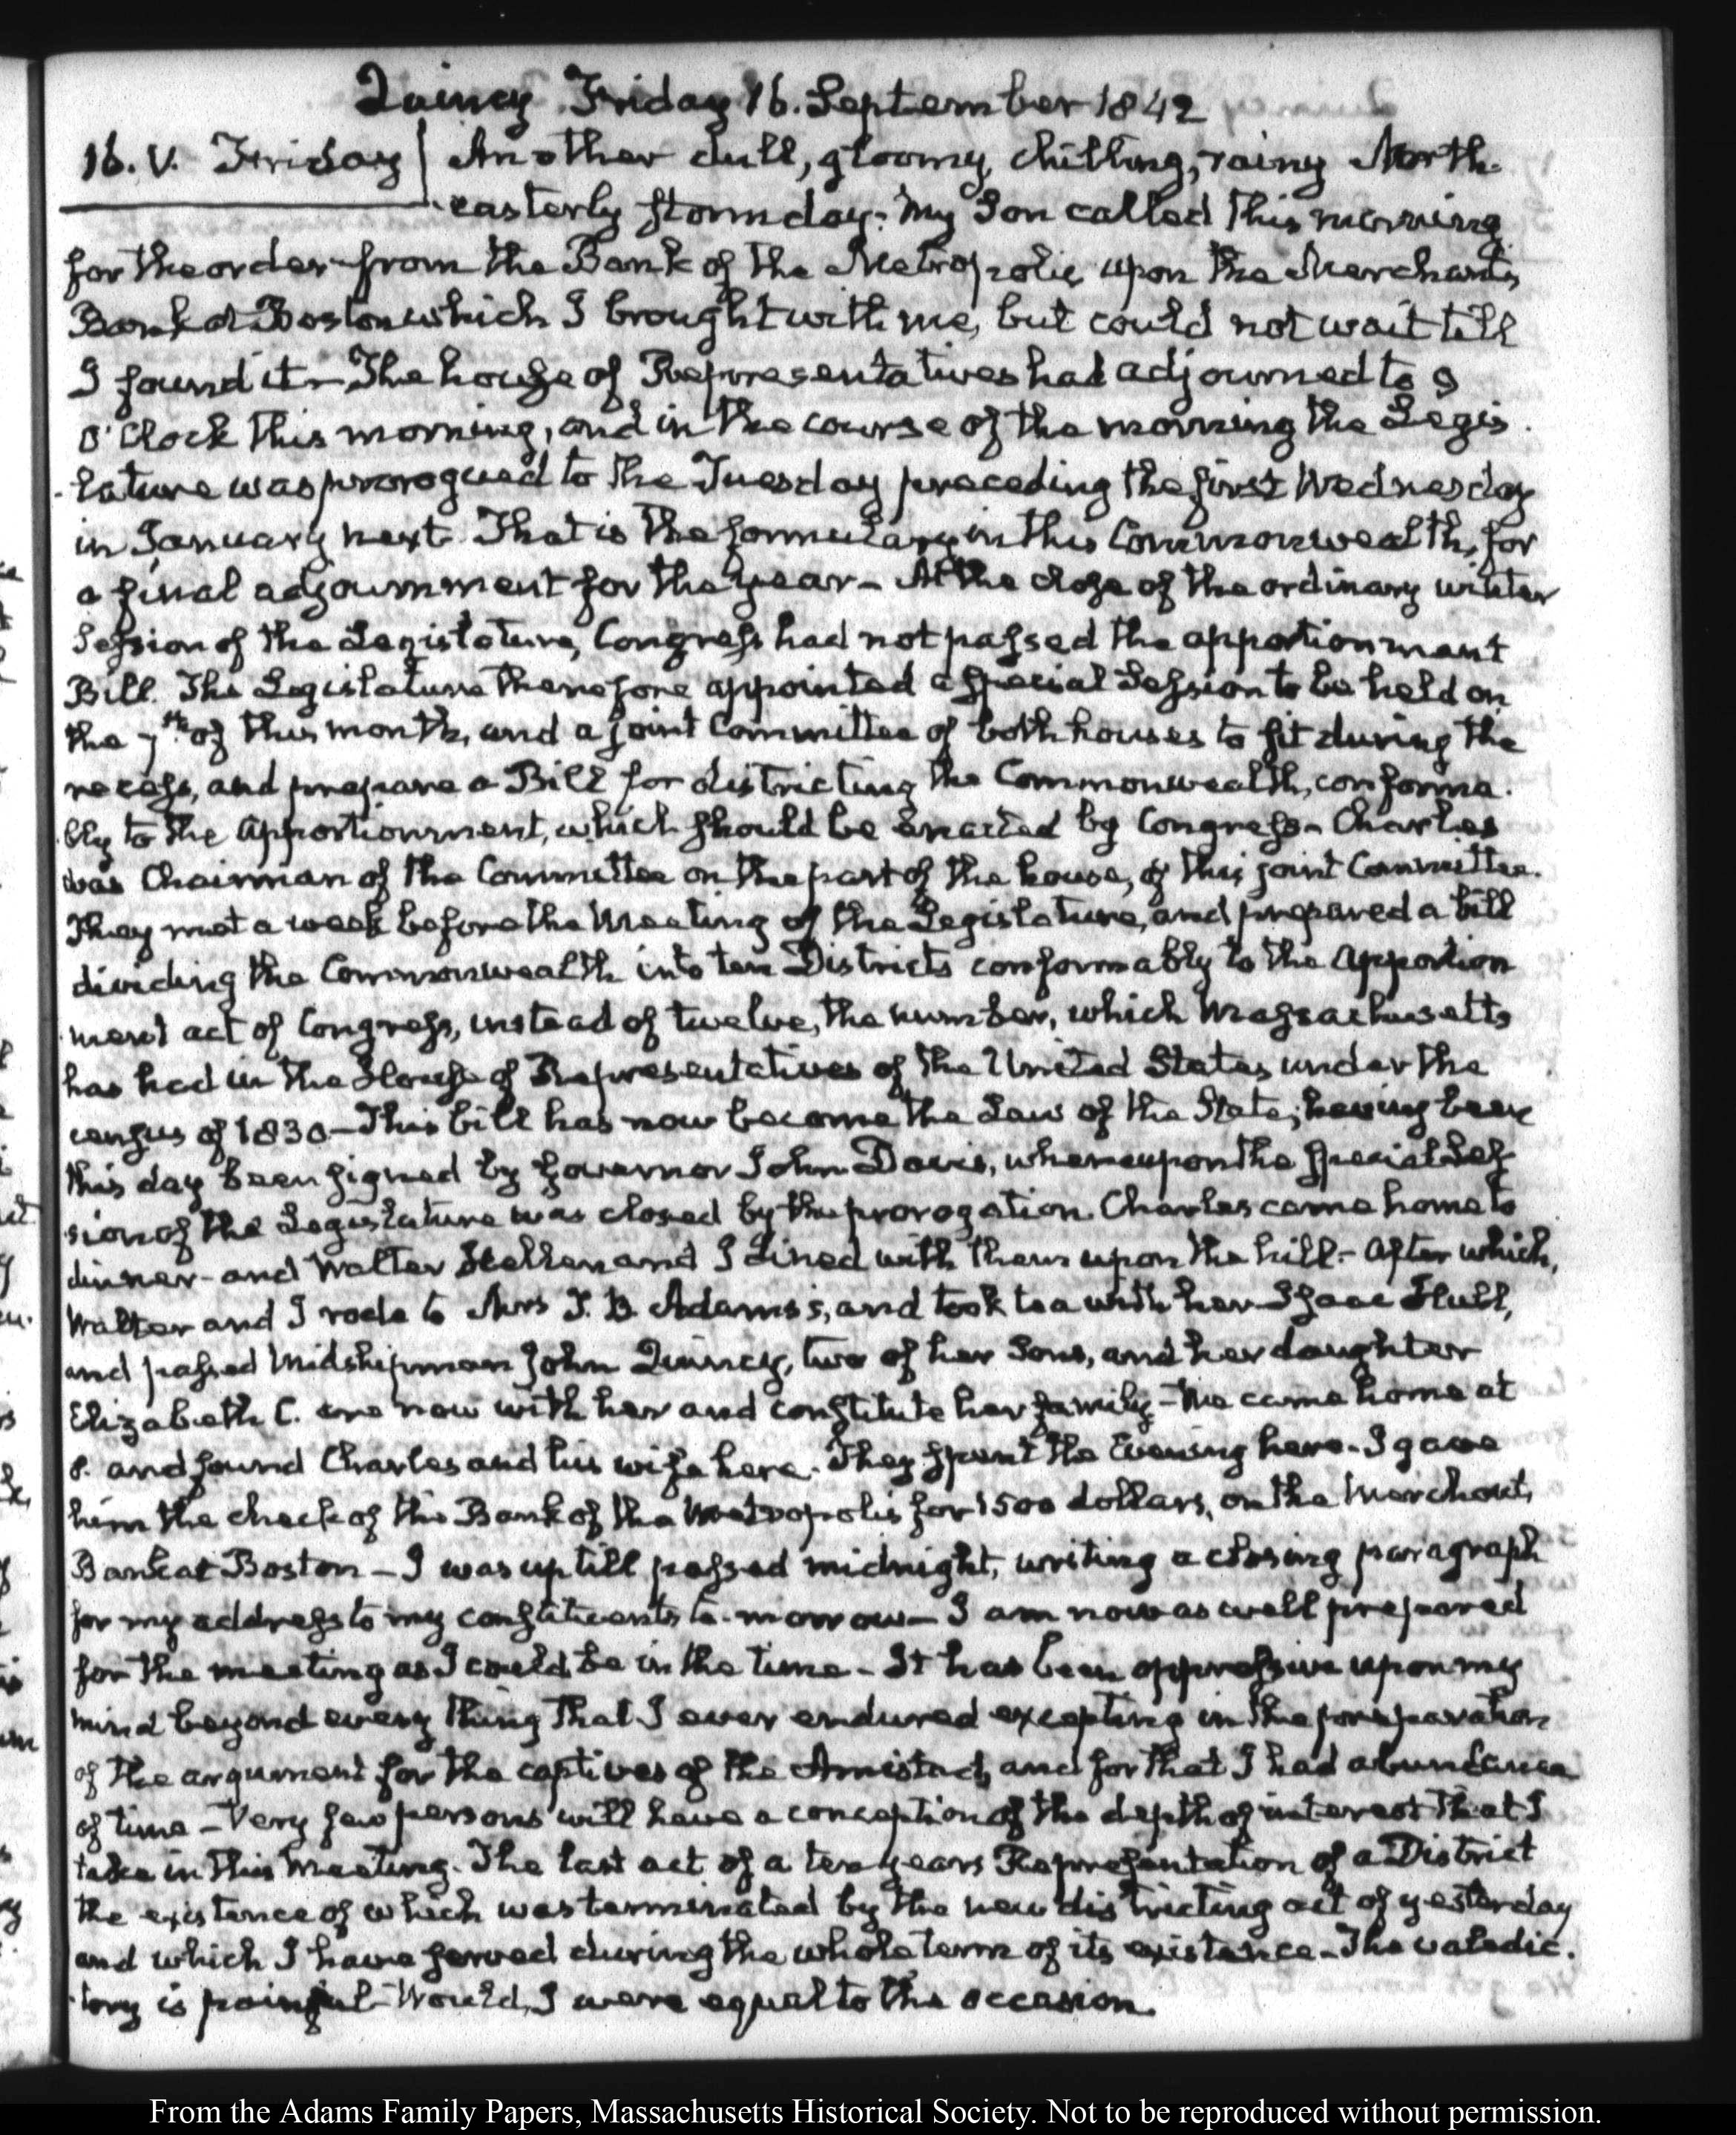 Quincy Friday 16. September 1842
16. V. Friday Another dull, gloomy, chilling, rainy North-
easterly storm day. My Son called this morning
for the order from the Bank of the Metropolis upon the Merchants
Bank at Boston which I brought with me, but could not wait till
I found it – The house of Representatives had adjourned to 9
O'Clock this morning, and in the course of the morning the Legis-
-lature was prorogued to the Tuesday preceding the first Wednesday
in January next. That is the formulary in this Commonwealth, for
a final adjournment for the year – At the close of the ordinary winter
Session of the Legislature, Congress had not passed the apportionment
Bill. The Legislature therefore appointed a special Session to be held on
the 7th of this month, and a joint Committee of both houses to sit during the
recess, and prepare a Bill for districting the Commonwealth, conforma-
bly to the Apportionment, which should be enacted by Congress – Charles
was Chairman of the Committee on the part of the house, of this joint Committee.
They met a week before the Meeting of the Legislature, and prepared a bill
dividing the Commonwealth into ten Districts conformably to the Apportion
ment act of Congress, instead of twelve, the number, which Massachusetts
has had in the House of Representatives of the United States under the
census of 1830 – This bill has now become the Law of the State; having been
this day been signed by Governor John Davis, whereupon the special Ses-
sion of the Legislature was closed by the prorogation. Charles came home to
dinner – and Walter Hellen and I dined with them upon the hill – After which,
Walter and I rode to Mrs T. B. Adams's, and took tea with her Isaac Hull,
and passed Midshipman John Quincy, two of her Sons, and her daughter
Elizabeth C. are now with her and constitute her family – We came home at
8. and found Charles and his wife here. They spent the Evening here – I gave
him the check of the Bank of the Metropolis for 1500 dollars, on the Merchants
Bank at Boston – I was up till passed midnight, writing a closing paragraph
for my address to my constituents to-morrow – I am now as well prepared
for the meeting as I could be in the time – It has been oppressive upon my
mind beyond every thing that I ever endured excepting in the preparation
of the argument for the captives of the Amistad, and for that I had abundance
of time – Very few persons will have a conception of the depth of interest that I
take in this Meeting. The last act of a ten years Representation of a District
the existence of which was terminated by the new districting act of yesterday
and which I have served during the whole term of its existence – The valedic-
tory is painful – Would I were equal to the occasion.
From the Adams Family Papers, Massachusetts Historical Society. Not to be reproduced without permission.